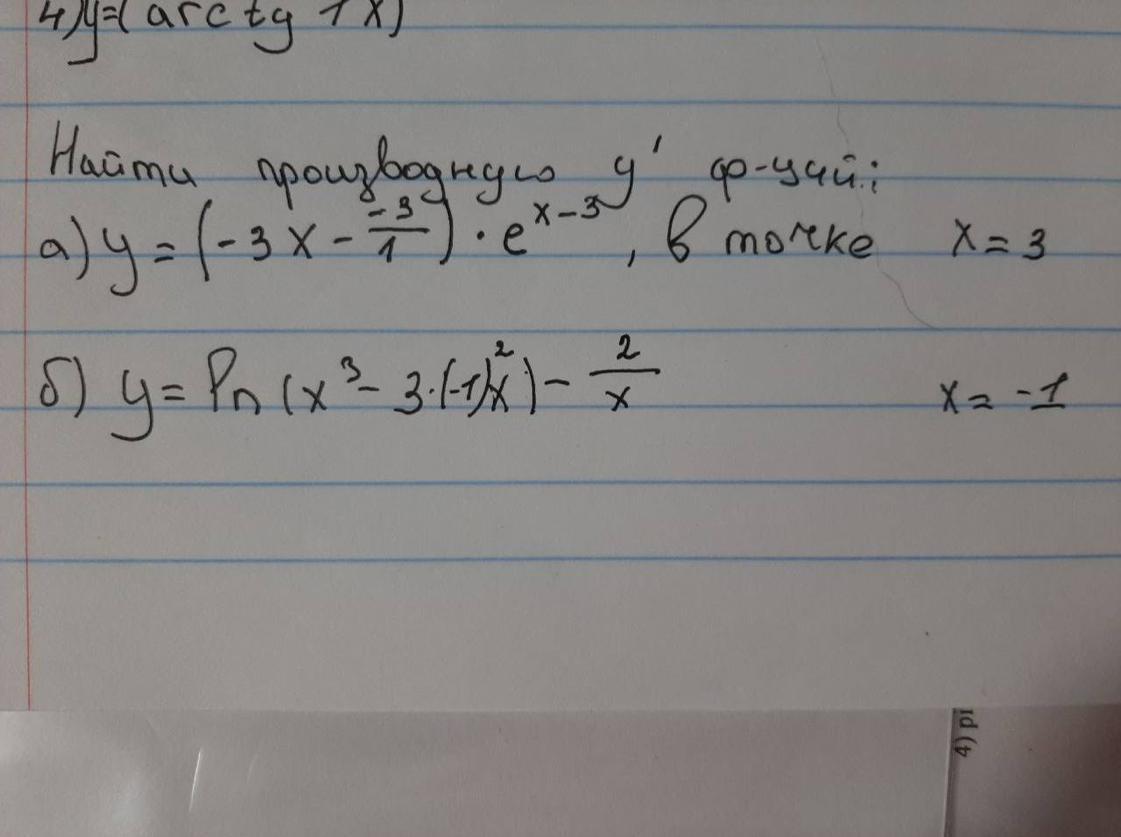 4) y=(arctg 7x)
Найти производную y' ф-ций:
а) y = (-3x - \frac{-3}{1}) · e^{x-3}, в точке x = 3
б) y = ln (x^3 - 3·(-1)x^2) - \frac{2}{x} x = -1
4) pi